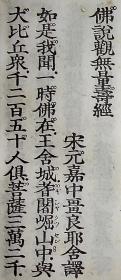 佛說觀無量壽經
宋元嘉中畺良耶舍譯
如是我聞一時佛在王舍城耆闍崛山中與
大比丘衆千二百五十人俱菩薩三萬二千